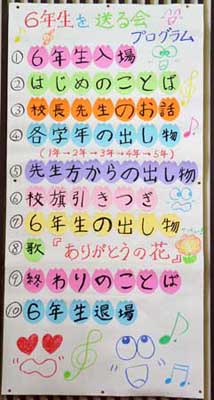 6年生を送る会
プログラム
① 6年生入場
② はじめのことば
③ 校長先生のお話
④ 各学年の出し物
(1年→2年→3年→4年→5年)
⑤ 先生方からの出し物
⑥ 校旗引きつぎ
⑦ 6年生の出し物
⑧ 歌『ありがとうの花』
⑨ 終わりのことば
⑩ 6年生退場